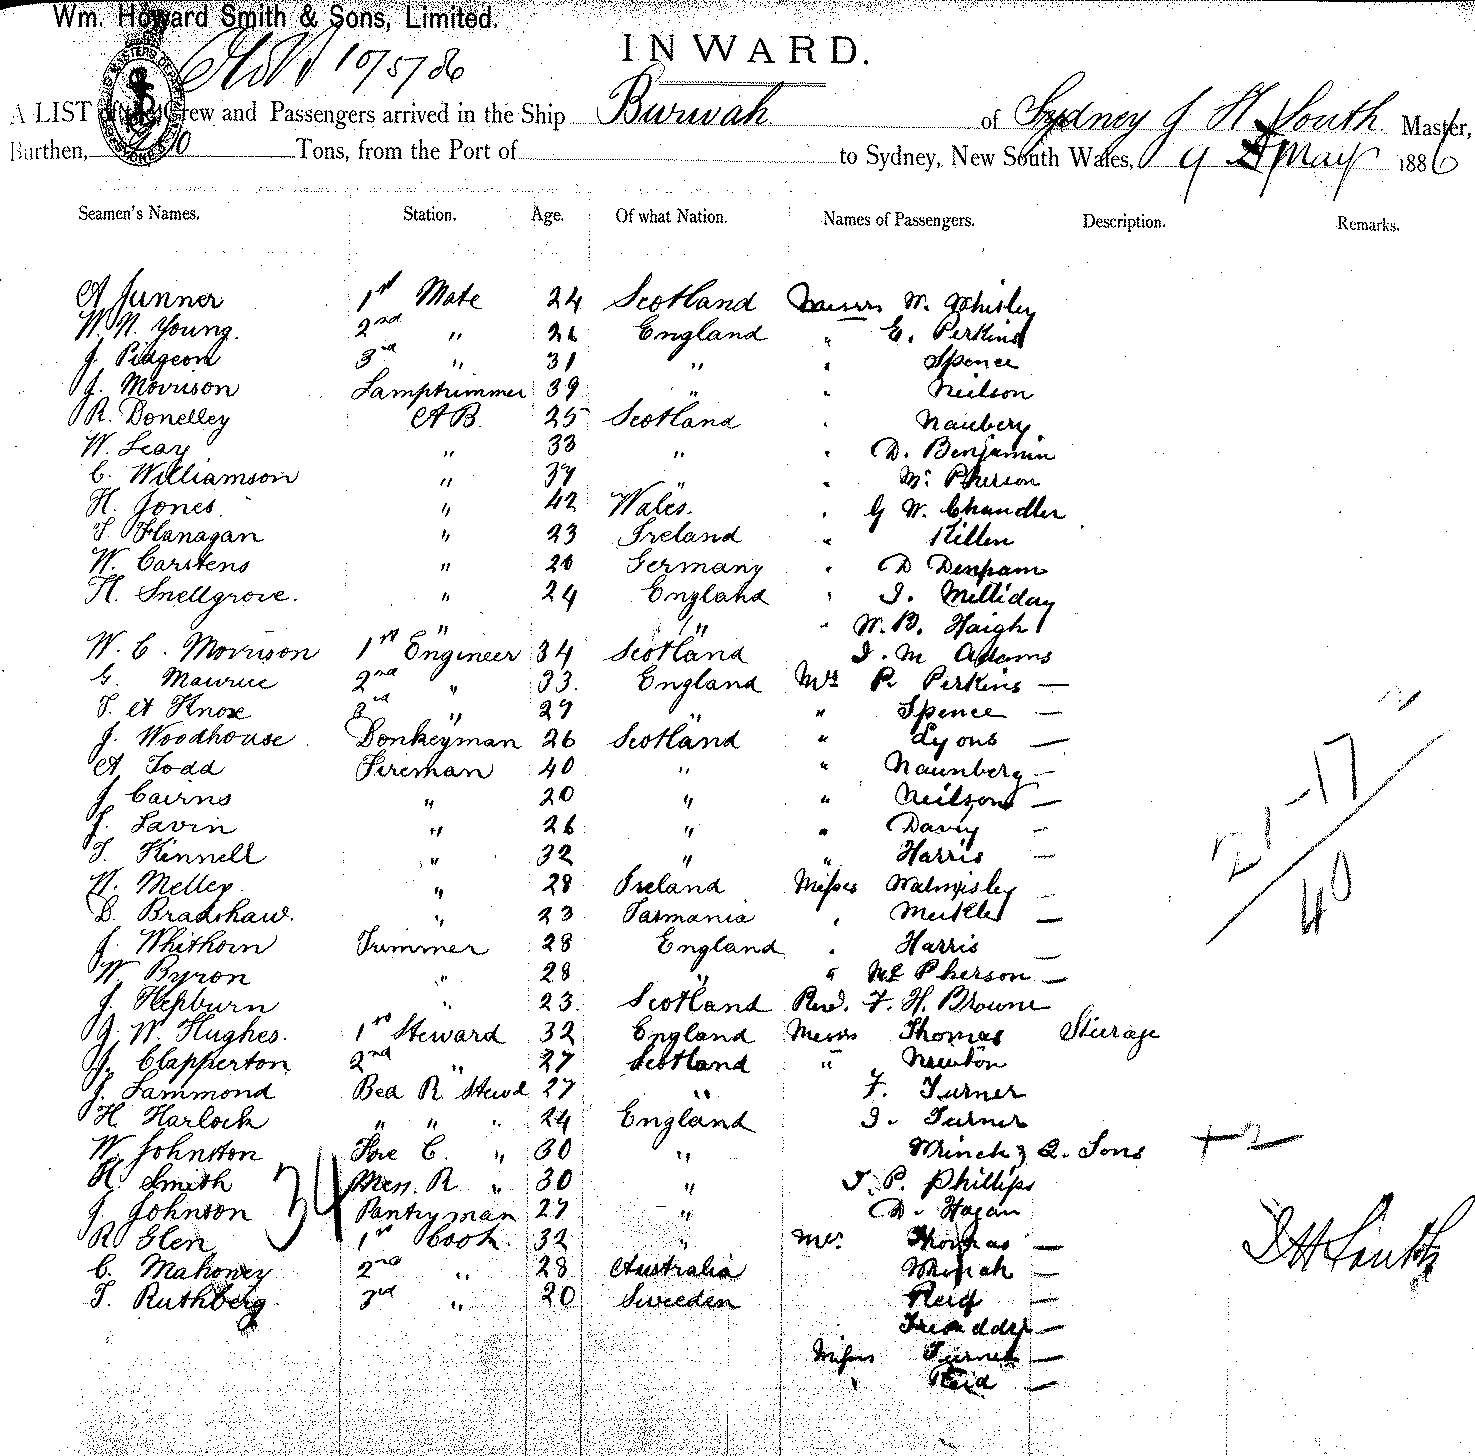 Wm. Howard Smith & Sons, Limited.
10/5/86
INWARD.
A LIST of the Crew and Passengers arrived in the Ship Burwah of Sydney J H South Master,
Burthen, Tons, from the Port of to Sydney, New South Wales, 9 May 1886
Seamen's Names. Station. Age. Of what Nation. Names of Passengers. Description. Remarks.
A Junner 1st Mate 24 Scotland Messrs W.
W. N. Young. 2nd " 26 England " E. Perkins
J. Pidgeon 3rd " 31 " " Spence
J. Morrison Lamptrimmer 39 " " Neilson
R. Donelley A B. 25 Scotland "
W. Leay " 33 " " D. Benjamin
C. Williamson " 37 " McPherson
H. Jones. " 42 Wales. " G W. Chandler
T. Flanagan " 23 Ireland " Killen
W. Carstens " 26 Germany " D Denham
H. Snellgrove. " 24 England " J. Milliday
" " " W. B. Haigh
W. C. Morrison 1st Engineer 34 Scotland J. M Adams
G. Maurice 2nd " 33. England Mrs P. Perkins —
T. A Knox 3rd " 27 " " Spence —
J. Woodhouse Donkeyman 26 Scotland " Lyons —
A Todd Fireman 40 " " Naunberg —
J Cairns " 20 " " Neilson —
J. Lavin " 26 " " Davy —
T. Kennell " 32 " " Harris —
H. Melley. " 28 Ireland Misses Walmisley —
D. Bradshaw. " 23 Tasmania " Meikle —
J. Whithorn Trimmer 28 England " Harris —
W Byron " 28 " " McPherson —
J. Hepburn " 23. Scotland Revd. F. H. Browne
J. W. Hughes. 1st Steward 32 England Messrs Thomas Steerage
J. Clapperton 2nd " 27 Scotland " Newton
J. Lammond Bed R Stewd 27 " F. Turner
H. Harlock " " " 24 England J. Turner
W. Johnston Fore C. " 30 " & 2. Sons +2
H. Smith Mess. R " 30 " J. P. Phillips
J. Johnson Pantryman 27 " D. Hagan
R Glen 1st Cook. 32 " Mrs. Thomas —
C. Mahoney 2nd " 28 Australia —
T. Ruthberg 3rd " 20 Sweden Reid —
—
Misses Turner —
" Reid —
34
21-17
40
J H South